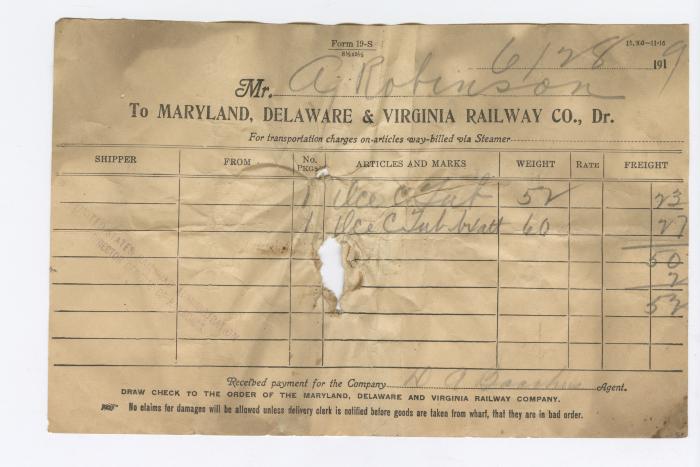 Form 19-S
8½x5½
15,X0-11-16
6/28 1919
Mr. A Robinson
To MARYLAND, DELAWARE & VIRGINIA RAILWAY CO., Dr.
For transportation charges on articles way-billed via Steamer
SHIPPER FROM No. PKGS ARTICLES AND MARKS WEIGHT RATE FREIGHT
1 Ice C Tub 52 23
1 Ice C Tub 60 27
50
2
52
UNITED STATES
Received payment for the Company Agent.
DRAW CHECK TO THE ORDER OF THE MARYLAND, DELAWARE AND VIRGINIA RAILWAY COMPANY.
No claims for damages will be allowed unless delivery clerk is notified before goods are taken from wharf, that they are in bad order.